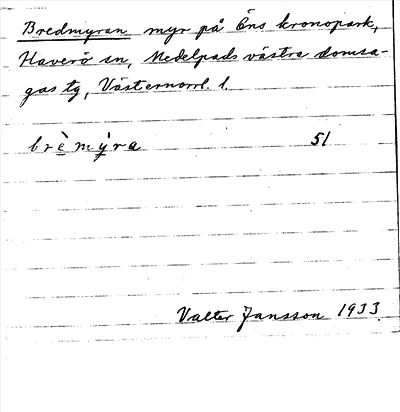 Bredmyran myr på Öns kronopark,
Haverö sn, Medelpads västra domsa-
gas tg, Västernorrl. l.
brè̱mẏ̱ra 51
Valter Jansson 1933.